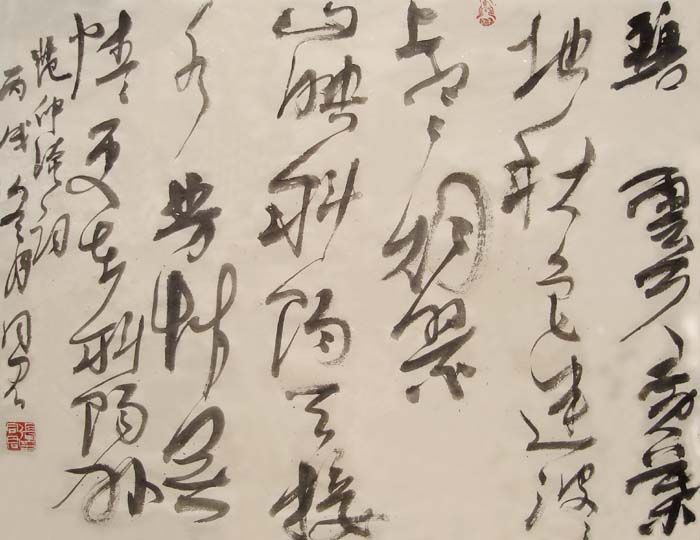 碧雲天黄葉
地秋色連波々
上寒烟翠
山映斜陽天接
水芳草無
情更在斜陽外
范仲淹词
丙戌冬月